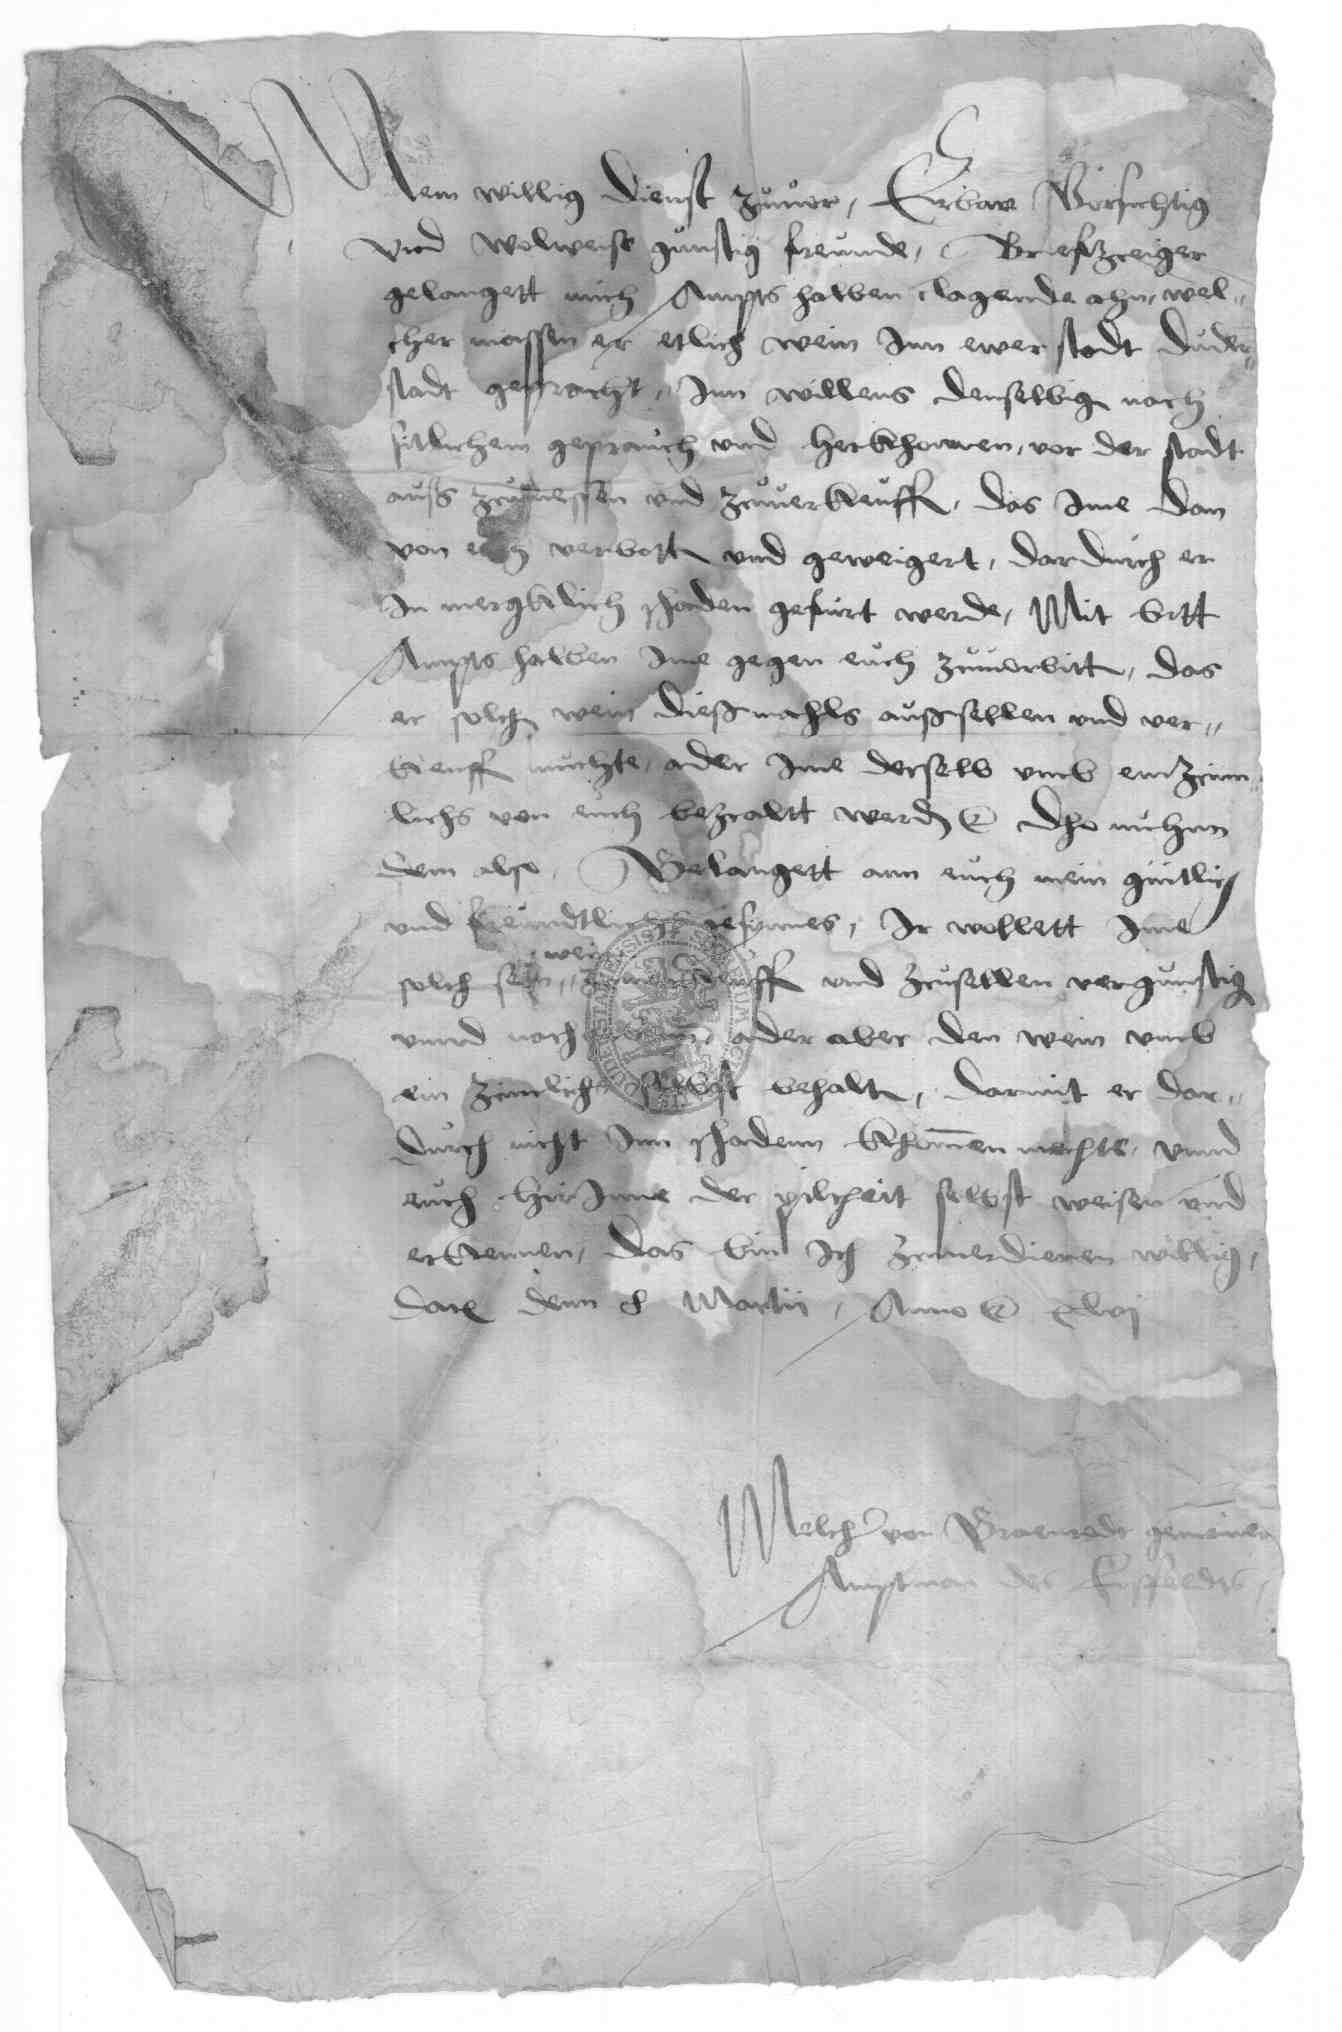 Mein willig dienst zuuor, Erbare Vorsichtig
vnd wolweise gunstig freunde, Briefzceiger
gelangett mich Ampts halben clagende ahn, wel-
cher massen er etlich wein Inn ewer stadt Duder-
stadt gepracht, Inn willens denselbig nach
sitlichem geprauch vnd herkhomen, vor der stadt
auß zcumessen vnd zcuuerkeuffn, das Ime dan
von euch verbottn vnd geweigert, dardurch er
In mergklich schaden gefurt werde, Mit bitt
Ampts halben Ime gegen euch zcuuorbittn, das
er solch wein dießmahls außsellen vnd ver-
keuffn muchte, ader Ime derselb vmb ein zcim-
lichs von euch bezcaltt werdn etc Dho nuhnn
dem also, Belangett ann euch mein gutlich
vnd freundtlichs gesynnes, Ir wollett Ime
solch sein wein zcuuerkeuffn vnd zcusellen vergunstig
vnnd nachgeben, ader aber den wein vmb
ein zcimlichs selbst behaltn, darmit er dar-
durch nicht Inn schadenn khommen mechte, vnnd
euch hir Inne der pilcheit selbst weisen vnd
erkennen, das bin Ich zcuuerdienen willig,
Datum denn 8 Martii, Anno etc xlvj
Melcher von Graenrode gemeiner
Amptman des Eyssfeldts,